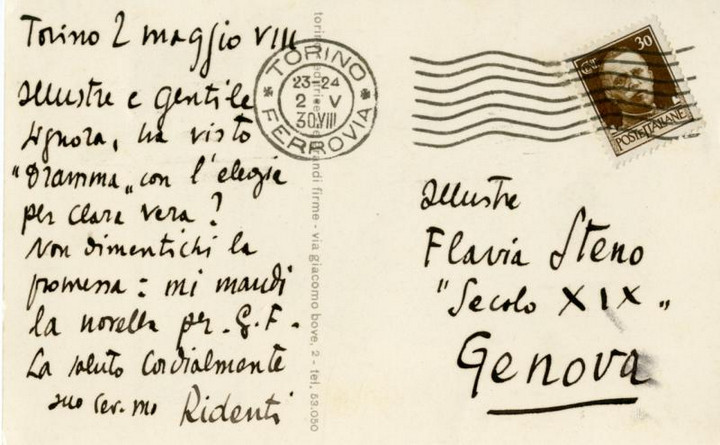 Torino 2 maggio VIII
Illustre e gentile
signora, ha visto
"Dramma" con l'elogio
per Clara Vera?
Non dimentichi la
promessa: mi mandi
la novella per G.F.
La saluto cordialmente
suo ser.mo Ridenti
TORINO
23-24
2 V
30.VIII
FERROVIA
30
POSTE ITALIANE
Illustre
Flavia Steno
"Secolo XIX"
Genova
grandi firme - via giacomo bove, 2 - tel. 53.050